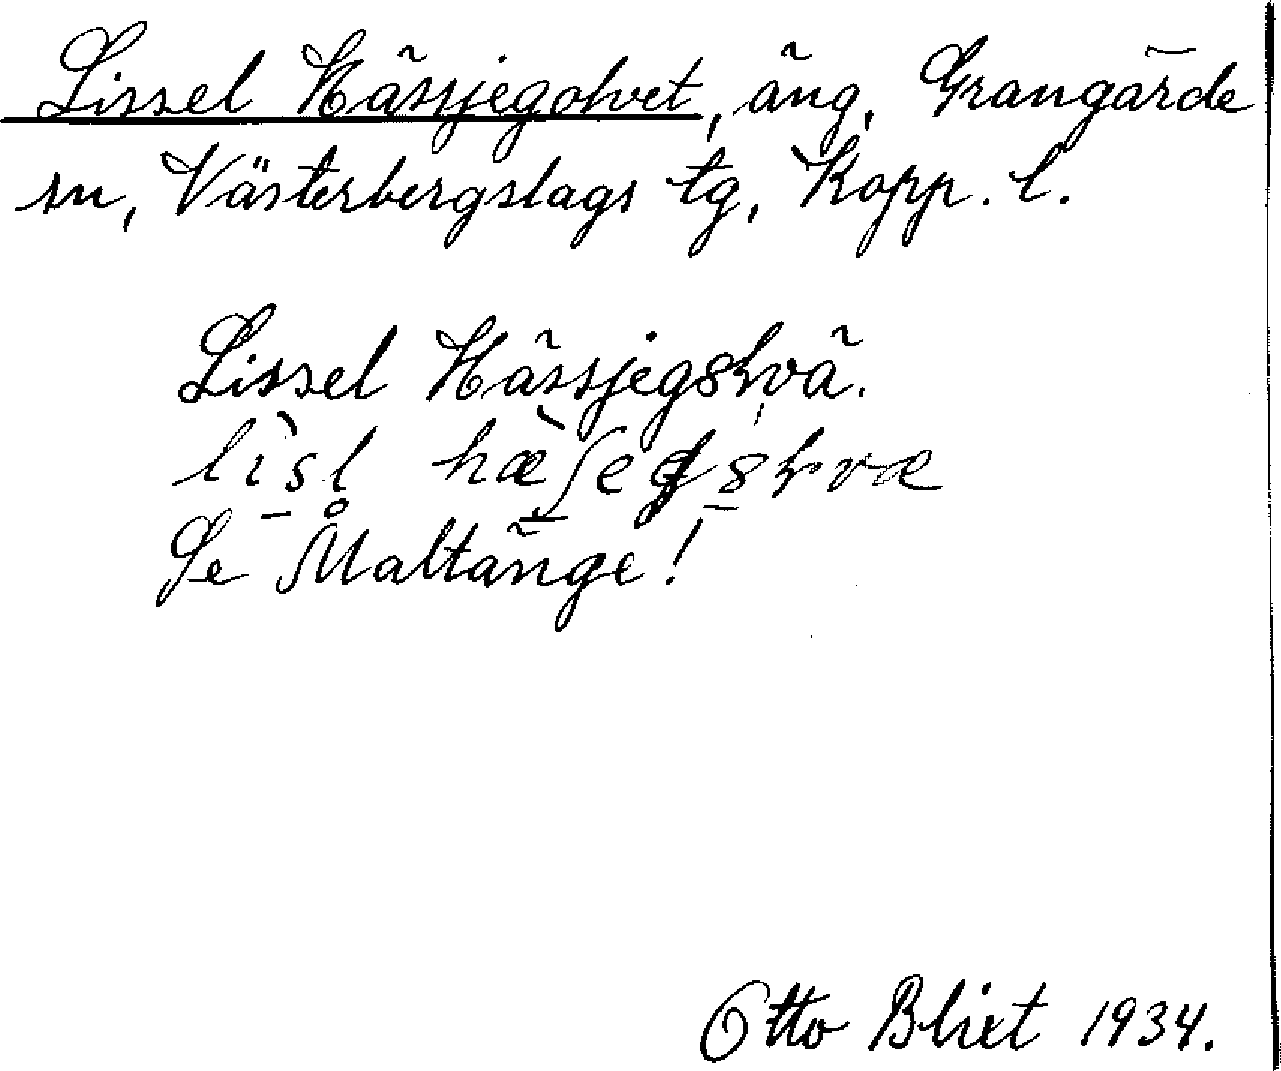 Lissel Hässjegolvet, äng, Grangärde
sn, Västerbergslags tg, Kopp. l.
Lissel Hässjeg8ɽvä.
Se Maltänge!
Otto Blixt 1934.